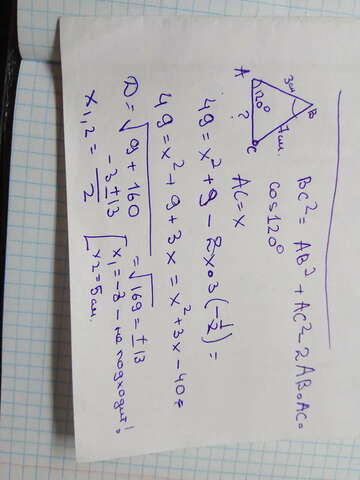 BC² = AB² + AC² - 2AB·AC·
cos120°
B
3см
7см.
A
120°
?
C
AC = x
49 = x² + 9 - 2x·3(-1/2) =
49 = x² + 9 + 3x = x² + 3x - 40 =
D = √9 + 160 = √169 = ±13
x1,2 = -3±13 / 2
x1 = -8 - не подходит!
x2 = 5см.